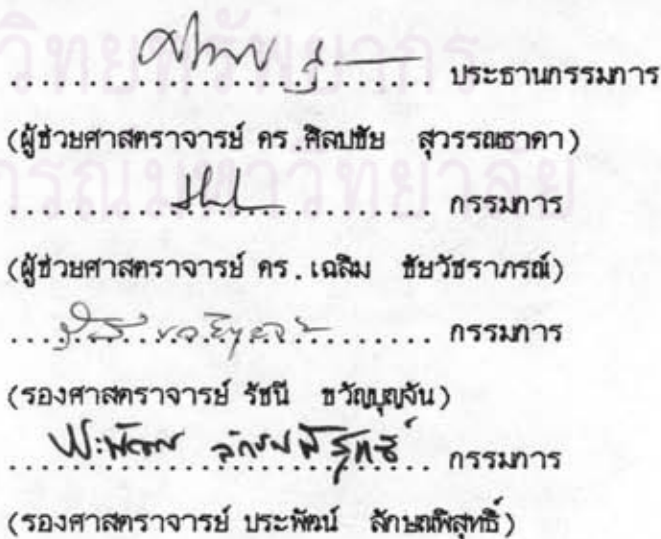 ประธานกรรมการ
(ผู้ช่วยศาสตราจารย์ ดร.ศิลปชัย สุวรรณธาดา)
กรรมการ
(ผู้ช่วยศาสตราจารย์ ดร.เฉลิม ชัยวัชราภรณ์)
กรรมการ
(รองศาสตราจารย์ รัชนี ขวัญบุญจัน)
ประพัฒน์ ลักษณพิสุทธิ์ กรรมการ
(รองศาสตราจารย์ ประพัฒน์ ลักษณพิสุทธิ์)